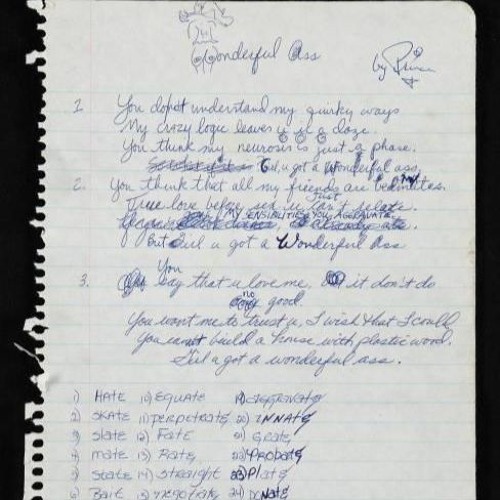 Wonderful Ass
by Prince
1. You do not understand my quirky ways
My crazy logic leaves u in a daze.
You think my neurosis is just a phase.
Girl, u got a Wonderful ass.
2. You think that all my friends are
True love before sex u just can't relate.
MY SENSIBILITIES YOU AGGRAVATE
But Girl u got a Wonderful Ass
3. You say that u love me, it don't do
no good
You want me to trust u, I wish that I could
You cannot build a house with plastic wood.
Girl u got a wonderful ass.
1) HATE 10) EQUATE 19) aggravate
2) SKATE 11) PERPETRATE 20) INNATE
3) slate 12) FATE 21) GRATE
4) mate 13) RATE 22) PROBATE
5) STATE 14) STRAIGHT 23) PLATE
6) BAIT 24) DONATE